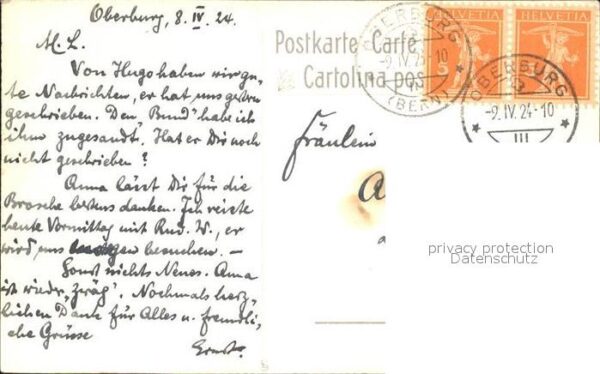 Oberburg, 8. IV. 24.
M. L.
Von Hugo haben wir gu-
te Nachrichten, er hat uns gestern
geschrieben. Den „Bund" habe ich
ihm zugesandt. Hat er Dir noch
nicht geschrieben?
Anna lässt Dir für die
Brosche bestens danken. Ich reiste
heute Vormittag mit Rud. W., er
wird uns morgen besuchen. —
Sonst nichts Neues. Anna
ist wieder „zwäg". Nochmals herz-
lichen Dank für Alles u. freundli-
che Grüsse
Ernst.
Postkarte Carte
Cartolina pos
HELVETIA HELVETIA
5 5
OBERBURG
-9.IV.24-10
(BERN)
OBERBURG
-9.IV.24-10
III
Fräulein
A
privacy protection
Datenschutz